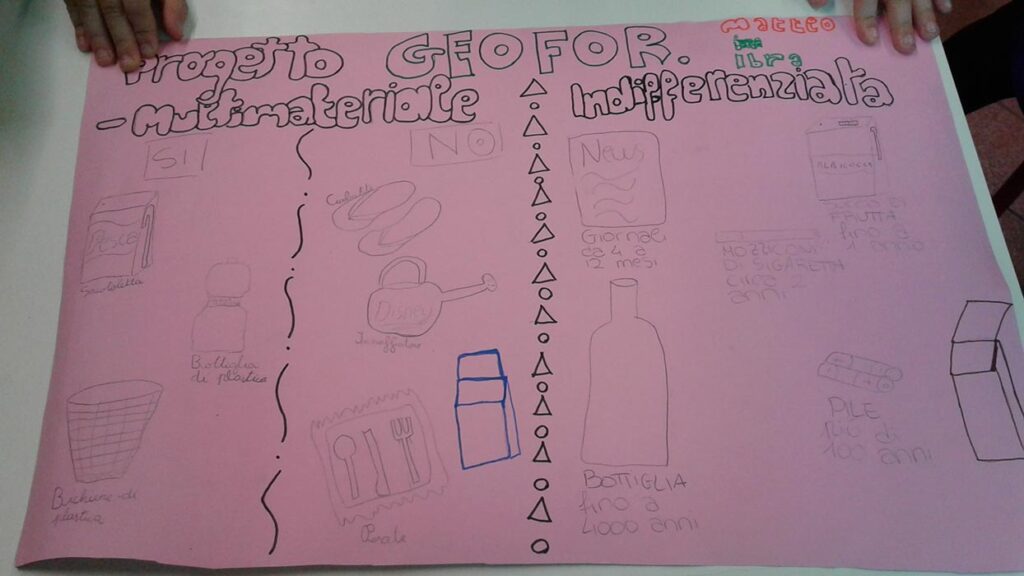 Progetto GEOFOR.
MATTEO
IBRA
- Multimateriale
SI
NO
Pesca
Scatoletta
Bottiglia
di plastica
Bichiere di
plastica
Ciabatte
Disney
Innaffiatoio
Posate
Indifferenziata
News
Giornali
da 4 a
12 mesi
FRUTTA
fino a
1 anno
MOZZICONI
DI SIGARETTA
circa 2
anni
BOTTIGLIA
fino a
4000 anni
PILE
più di
100 anni